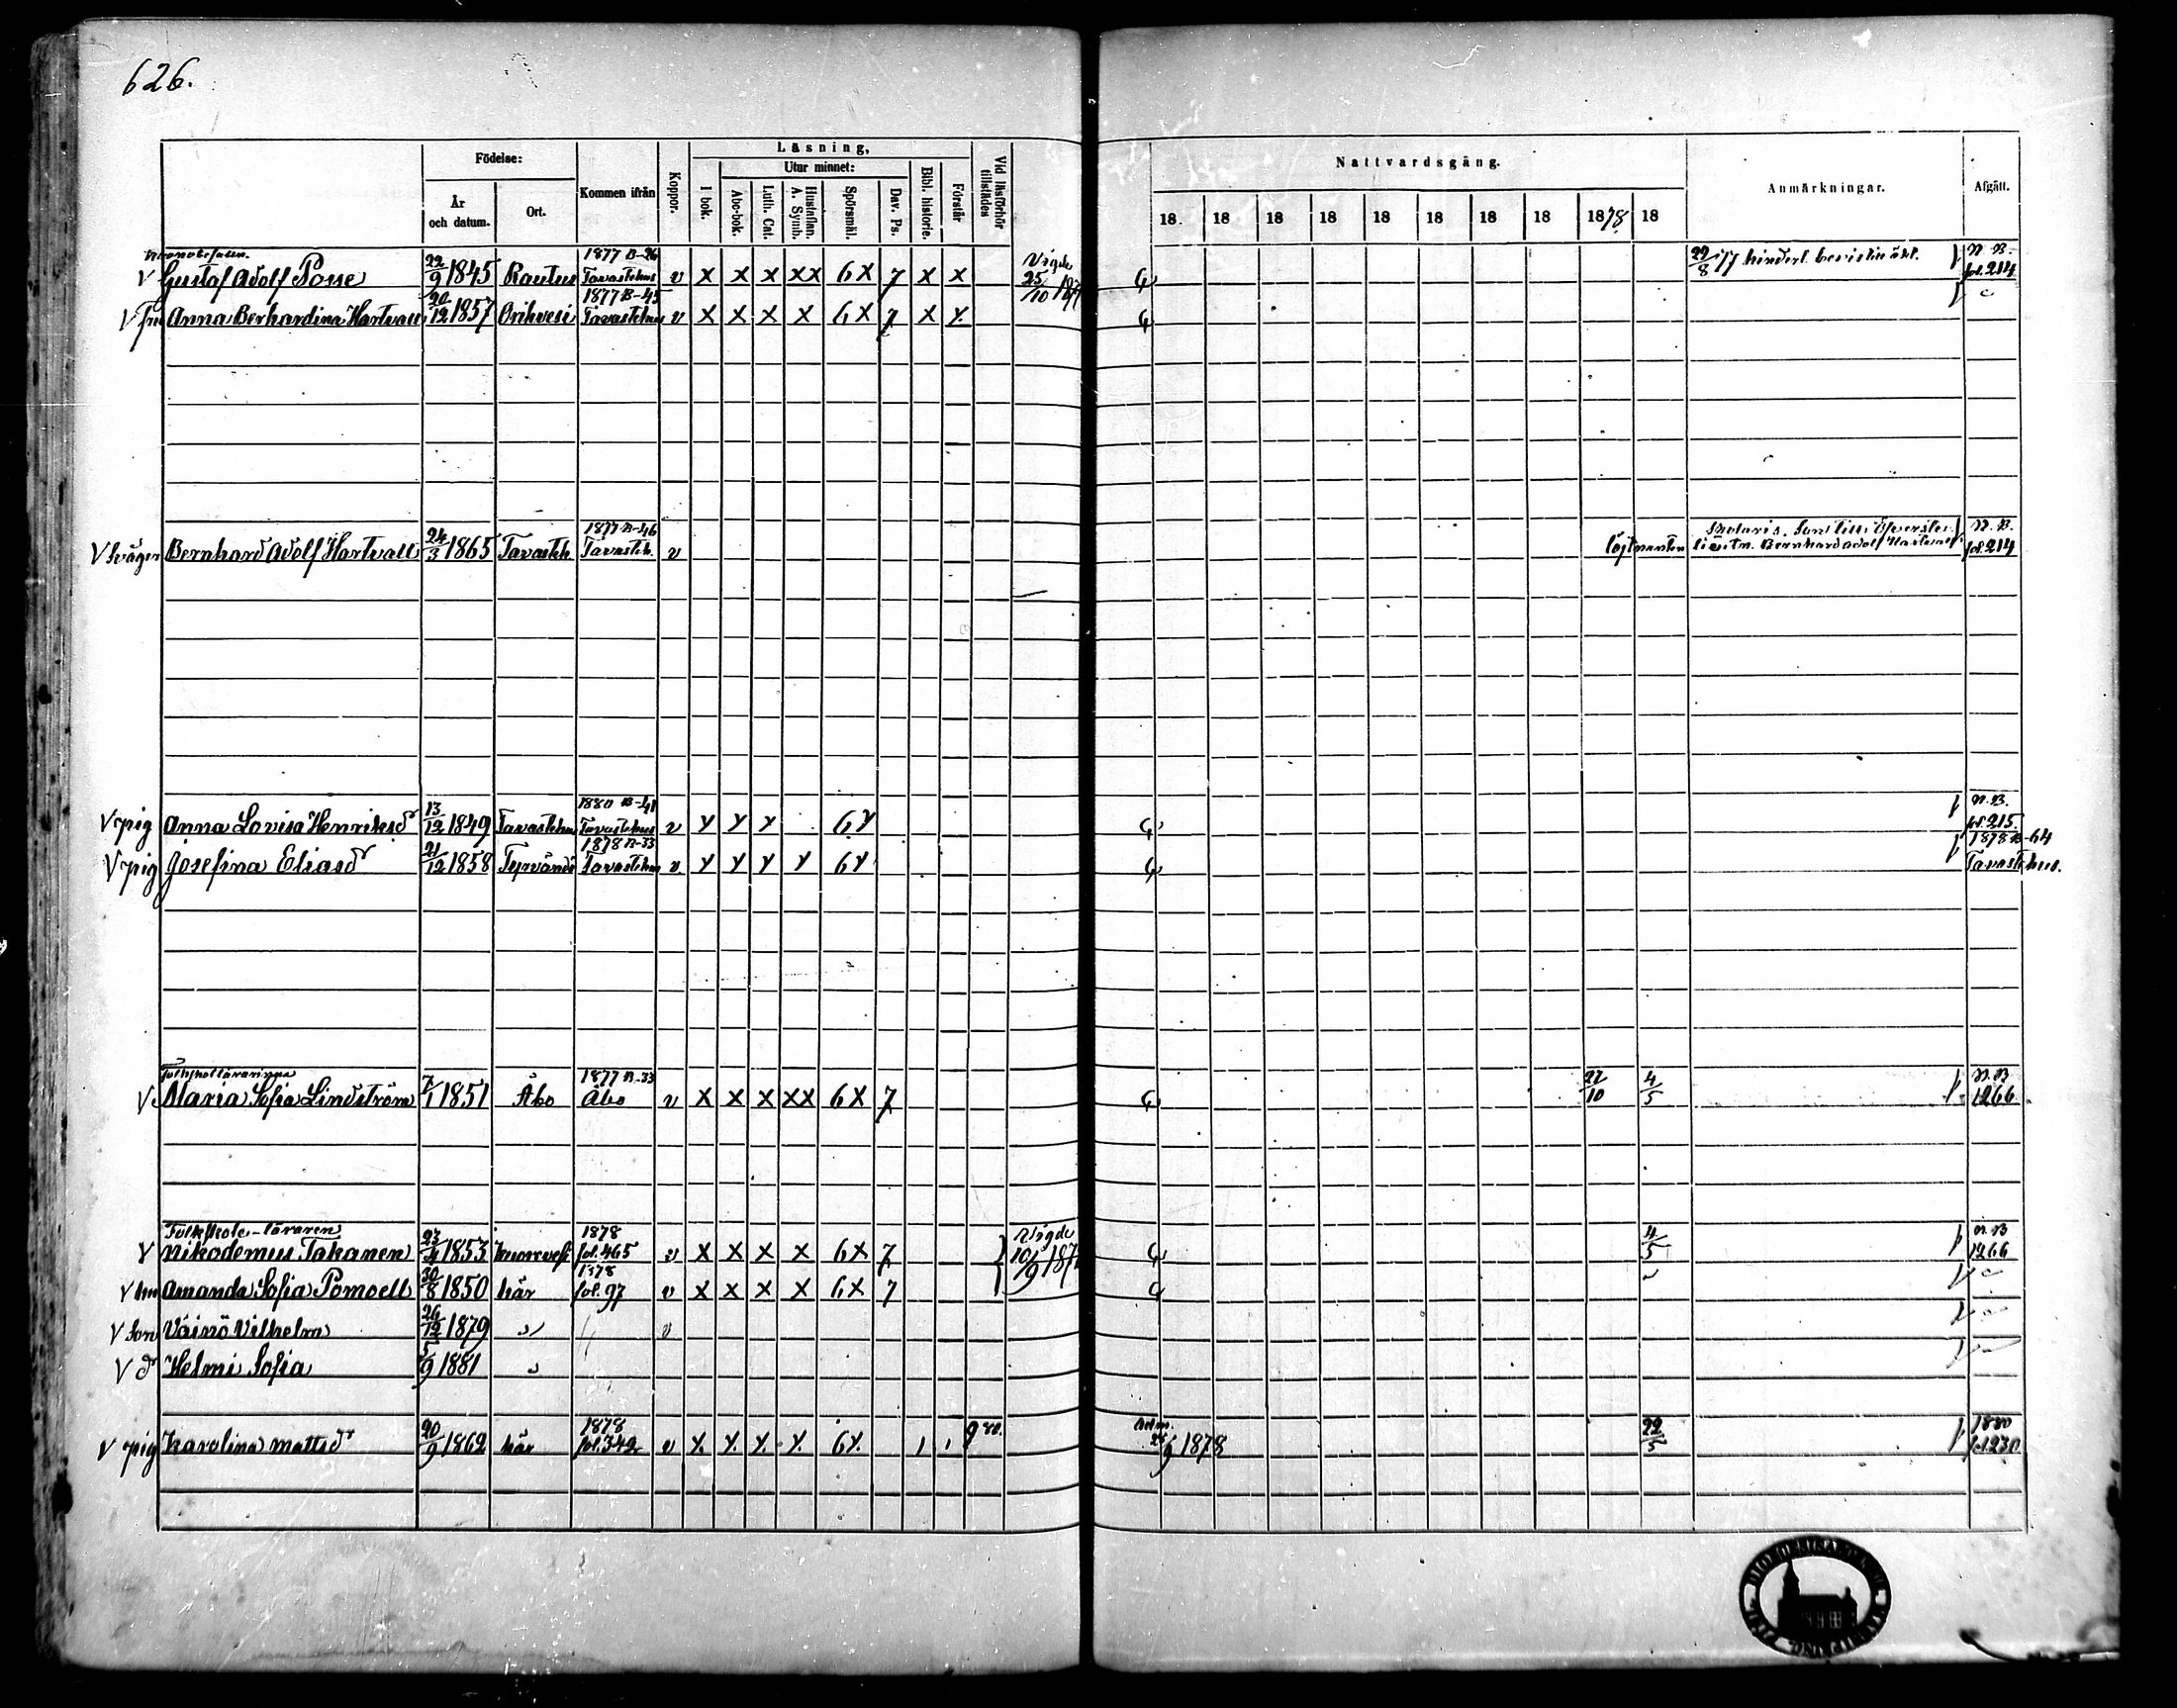 626.
Födelse:
År
och datum.
Ort.
Kommen ifrån
Koppor.
Läsning,
I bok.
Utur minnet:
Abc-bok.
Luth. Cat.
Hustaflan.
A. Symb.
Spörsmål.
Dav. Ps.
Bibl. historie.
Förstår
Vid läsförhör
tillstädes
Nattvardsgång.
18. 18 18 18 18 18 18 18 1878 18
Anmärkningar.
Afgått.
1877 B-26 Vigde 22/8 77 hinderl. N. B.
V Gustaf Adolf Posse 22/9 1845 Rautus Tavastehus v X X X XX 6X 7 X X 25/10 fol. 214
1877 B-45
V fru Anna Berhardina Hartvall 20/12 1857 Orihvesi Tavastehus v X X X X 6X 7 X X
1877 B-46 N. B.
V Sväger Bernhard Adolf Hartvall 24/3 1865 Tavasteh. Tavasteh. v löjtnanten Bernhard Adolf Hartvall fol. 214
1880 B-41 N. B.
V pig Anna Lovisa Henriksd 13/12 1849 Tavastehus Tavastehus v Y Y Y 6Y fol. 215
1878 B-33 1878 B-64
V pig Josefina Eliasd 21/12 1858 Tyrvändö Tavastehus v Y Y Y Y 6Y Tavastehus.
Folkskollärarinna 1877 B-33 N. B
V Maria Sofia Lindström 7/1 1851 Åbo Åbo v X X X XX 6X 7 27/10 4/5 1266
Folkskole-läraren 1878 Vigde N. B
V Nikodemus Takanen 23/4 1853 Kuorevesi fol. 465 v X X X X 6X 7 10/9 187 4/5 1266
1878
V hu Amanda Sofia Pomoell 30/8 1850 här fol. 97 v X X X X 6X 7
V Son Väinö Vilhelm 26/12 1879 " v
V d Helmi Sofia 5/9 1881 "
1878 9 80. Adm. 1880
V pig Karolina Mattsd 20/9 1862 här fol. 342 v X. X. X. X. 6X. 1 1 25/9 1878 22/5 fol. 230